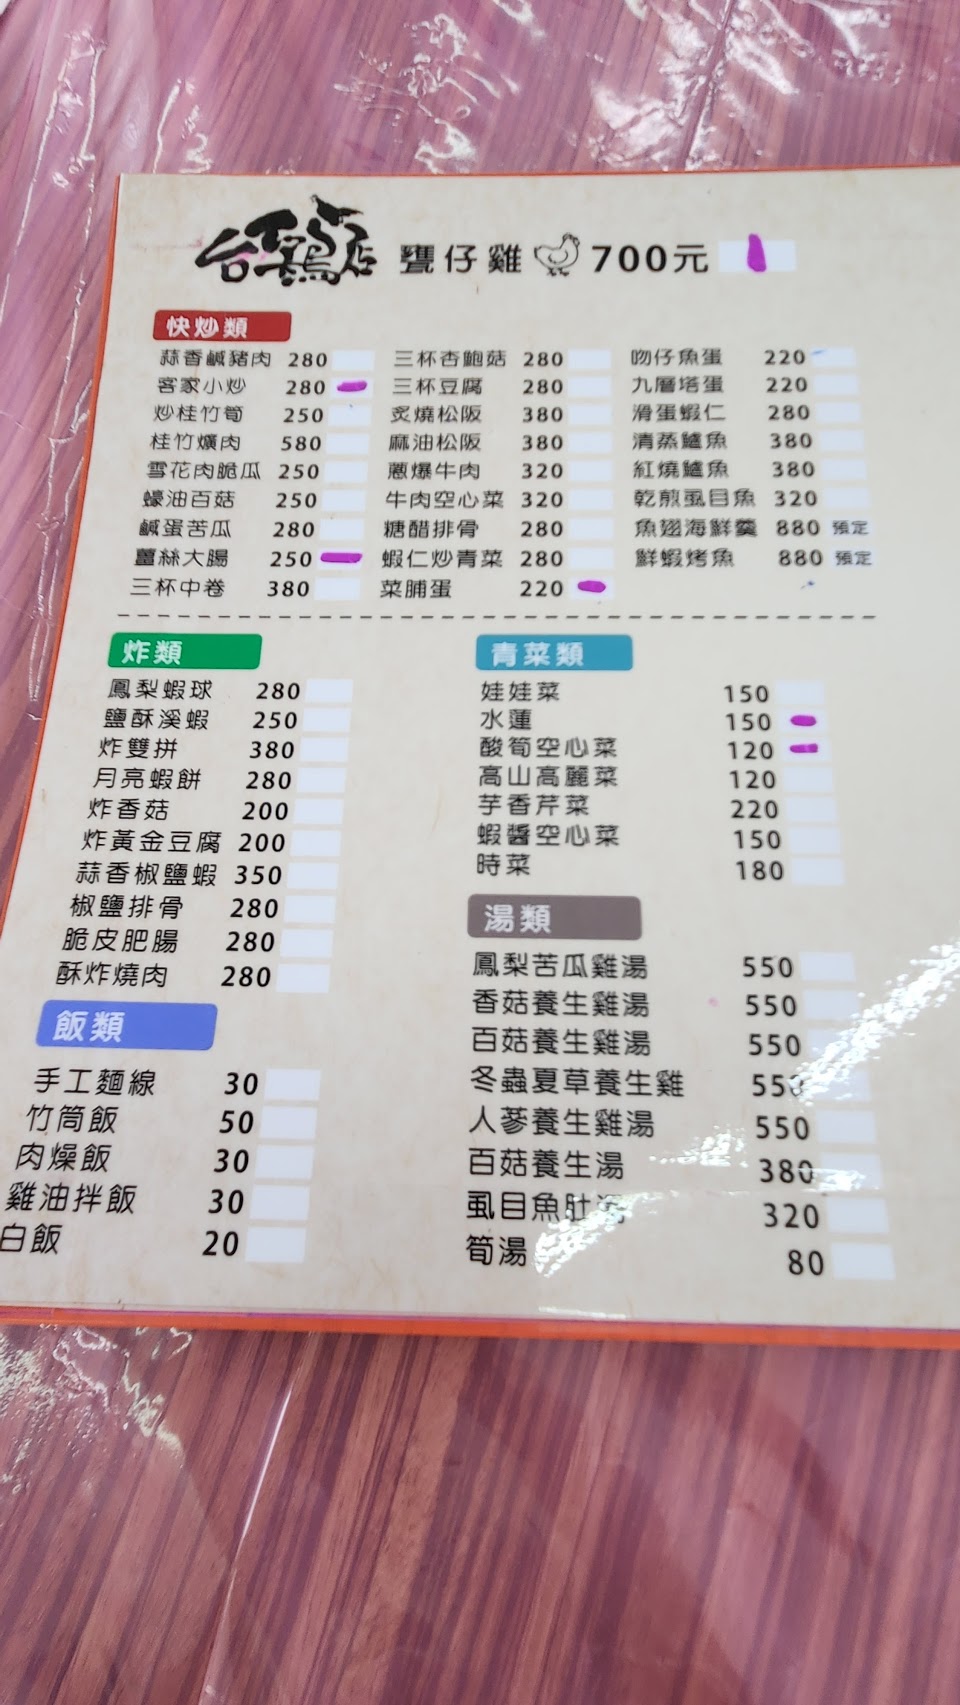 台三雞店 甕仔雞 700元
快炒類
蒜香鹹豬肉 280 三杯杏鮑菇 280 吻仔魚蛋 220
客家小炒 280 三杯豆腐 280 九層塔蛋 220
炒桂竹筍 250 炙燒松阪 380 滑蛋蝦仁 280
桂竹爌肉 580 麻油松阪 380 清蒸鱸魚 380
雪花肉脆瓜 250 蔥爆牛肉 320 紅燒鱸魚 380
蠔油百菇 250 牛肉空心菜 320 乾煎虱目魚 320
鹹蛋苦瓜 280 糖醋排骨 280 魚翅海鮮羹 880 預定
薑絲大腸 250 蝦仁炒青菜 280 鮮蝦烤魚 880 預定
三杯中卷 380 菜脯蛋 220
炸類
鳳梨蝦球 280
鹽酥溪蝦 250
炸雙拼 380
月亮蝦餅 280
炸香菇 200
炸黃金豆腐 200
蒜香椒鹽蝦 350
椒鹽排骨 280
脆皮肥腸 280
酥炸燒肉 280
飯類
手工麵線 30
竹筒飯 50
肉燥飯 30
雞油拌飯 30
白飯 20
青菜類
娃娃菜 150
水蓮 150
酸筍空心菜 120
高山高麗菜 120
芋香芹菜 220
蝦醬空心菜 150
時菜 180
湯類
鳳梨苦瓜雞湯 550
香菇養生雞湯 550
百菇養生雞湯 550
冬蟲夏草養生雞 550
人蔘養生雞湯 550
百菇養生湯 380
虱目魚肚湯 320
筍湯 80